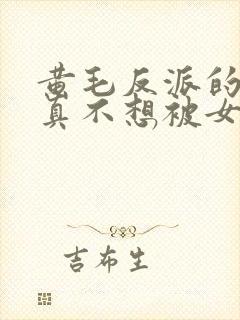 黄毛反派的
真不想被女
吉布生